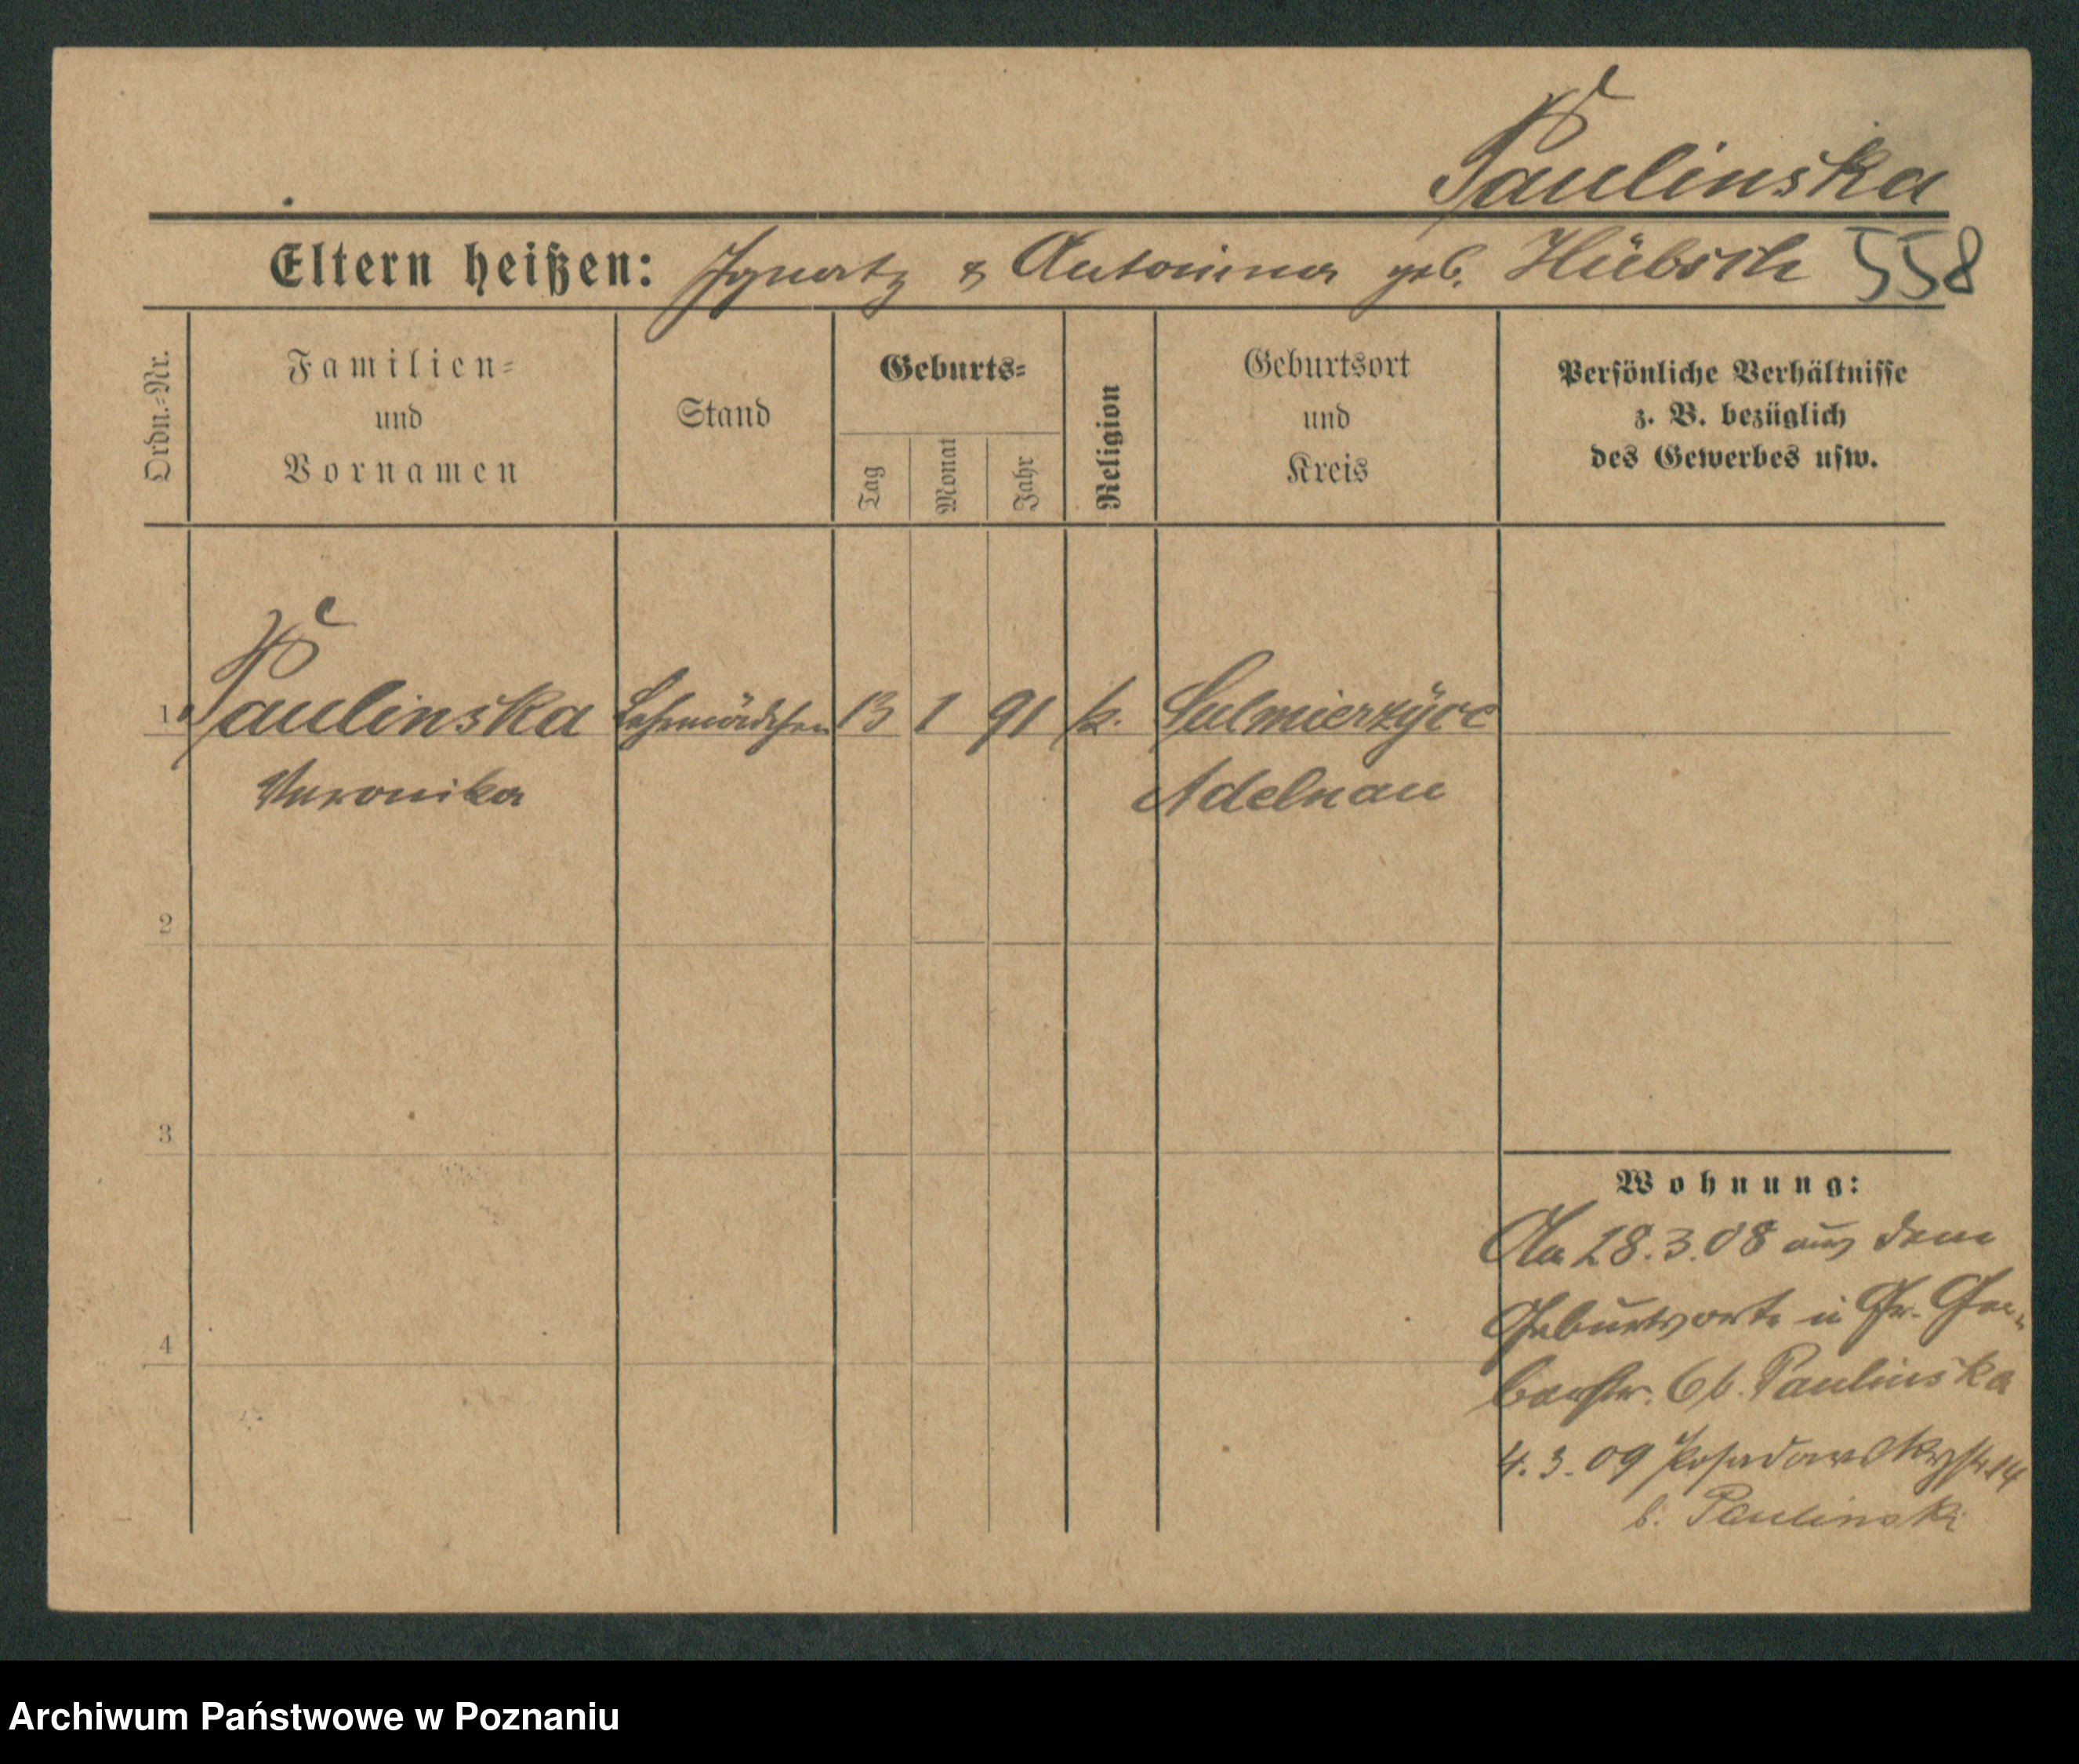 Paulinska
Eltern heißen: Ignatz & Antonina geb. Hübsch 558
Ordn.-Nr.
Familien-
und
Vornamen
Stand
Geburts-
Tag
Monat
Jahr
Religion
Geburtsort
und
Kreis
Persönliche Verhältnisse
z. B. bezüglich
des Gewerbes usw.
1 Paulinska Lehrmädchen 13 1 91 k. Sulmierzyce
Veronika Adelnau
2
3
4
Wohnung:
28.3.08 aus dem
Geburtsorte in Gr. Ger-
berstr. 6 b. Paulinska
4.3.09 Posadowskystr. 14
b. Paulinski
Archiwum Państwowe w Poznaniu